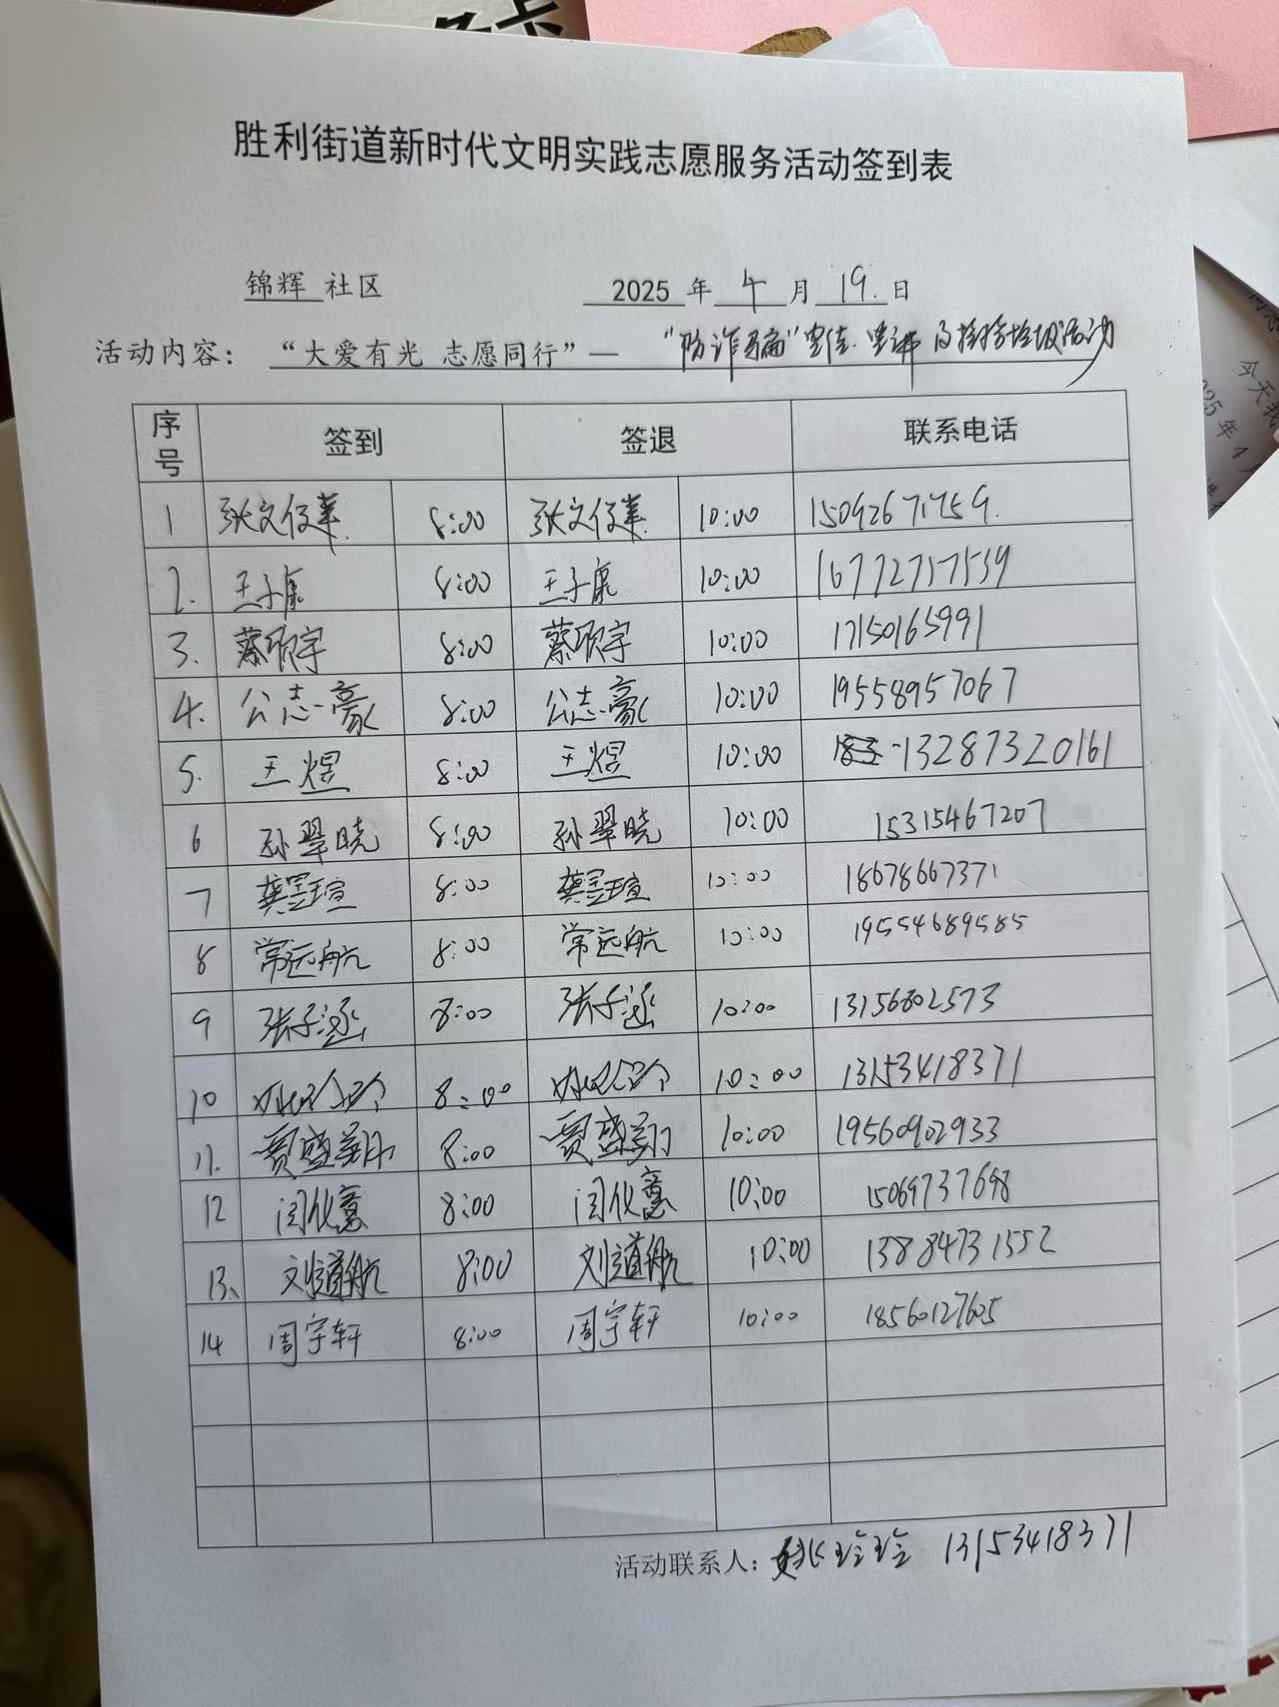 胜利街道新时代文明实践志愿服务活动签到表
锦辉 社区 2025 年 4 月 19. 日
活动内容： “大爱有光 志愿同行”— “防诈骗”宣传、宣讲 及捡拾垃圾活动
序号 签到 签退 联系电话
1 8:00 10:00
2. 王子康 8:00 王子康 10:00 16772717539
3. 蔡欣宇 8:00 蔡欣宇 10:00 17150165991
4. 公志豪 8:00 公志豪 10:00 19558957067
5. 王煜 8:00 王煜 10:00 13287320161
6 孙翠晓 8:00 孙翠晓 10:00 15315467207
7 龚昱瑄 8:00 龚昱瑄 10:00 18678667371
8 常远航 8:00 常远航 10:00 19554689585
9 张子涵 8:00 张子涵 10:00 13156802573
10 8:00 10:00 13153418371
11. 贾盛翔 8:00 贾盛翔 10:00 19560902933
12 闫化蕙 8:00 闫化蕙 10:00 15069737698
13、 刘道航 8:00 刘道航 10:00 13884731552
14 周宇轩 8:00 周宇轩 10:00 18560127605
活动联系人： 姚玲玲 13153418371